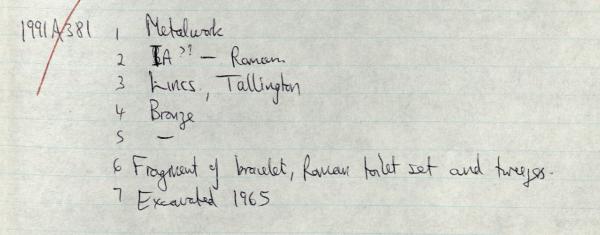 1991A/381 1 Metalwork
2 IA ?? – Roman
3 Lincs, Tallington
4 Bronze
5 –
6 Fragment of bracelet, Roman toilet set and tweezers.
7 Excavated 1965